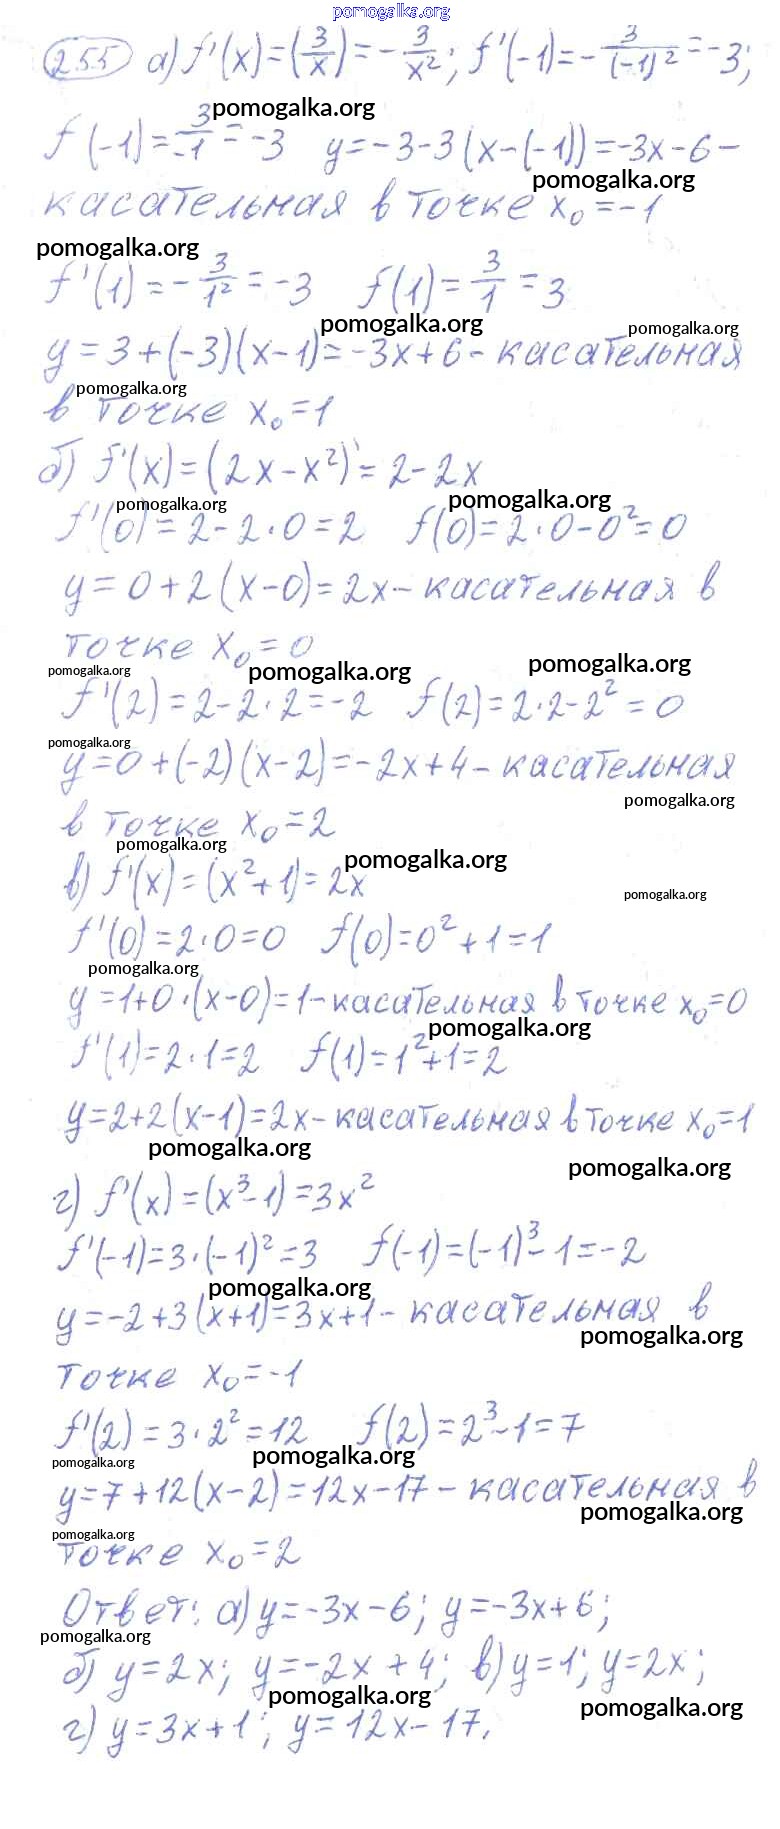 pomogalka.org
255 а) f'(x)=(3/x)=-3/x²; f'(-1)=-3/(-1)²=-3;
pomogalka.org
f(-1)=3/-1=-3 y=-3-3(x-(-1))=-3x-6-
pomogalka.org
касательная в точке x₀=-1
pomogalka.org
f'(1)=-3/1²=-3 f(1)=3/1=3
pomogalka.org pomogalka.org
y=3+(-3)(x-1)=-3x+6-касательная
pomogalka.org
в точке x₀=1
б) f'(x)=(2x-x²)'=2-2x
pomogalka.org pomogalka.org
f'(0)=2-2·0=2 f(0)=2·0-0²=0
y=0+2(x-0)=2x-касательная в
точке x₀=0
pomogalka.org pomogalka.org pomogalka.org
f'(2)=2-2·2=-2 f(2)=2·2-2²=0
pomogalka.org
y=0+(-2)(x-2)=-2x+4-касательная
pomogalka.org
в точке x₀=2
pomogalka.org pomogalka.org
в) f'(x)=(x²+1)=2x
pomogalka.org
f'(0)=2·0=0 f(0)=0²+1=1
pomogalka.org
y=1+0·(x-0)=1-касательная в точке x₀=0
pomogalka.org
f'(1)=2·1=2 f(1)=1²+1=2
y=2+2(x-1)=2x-касательная в точке x₀=1
pomogalka.org pomogalka.org
г) f'(x)=(x³-1)=3x²
f'(-1)=3·(-1)²=3 f(-1)=(-1)³-1=-2
pomogalka.org
y=-2+3(x+1)=3x+1-касательная в
pomogalka.org
точке x₀=-1
f'(2)=3·2²=12 f(2)=2³-1=7
pomogalka.org pomogalka.org
y=7+12(x-2)=12x-17-касательная в
pomogalka.org
pomogalka.org
точке x₀=2
Ответ: а) y=-3x-6; y=-3x+6;
pomogalka.org
б) y=2x; y=-2x+4; в) y=1; y=2x;
pomogalka.org pomogalka.org
г) y=3x+1; y=12x-17.
pomogalka.org